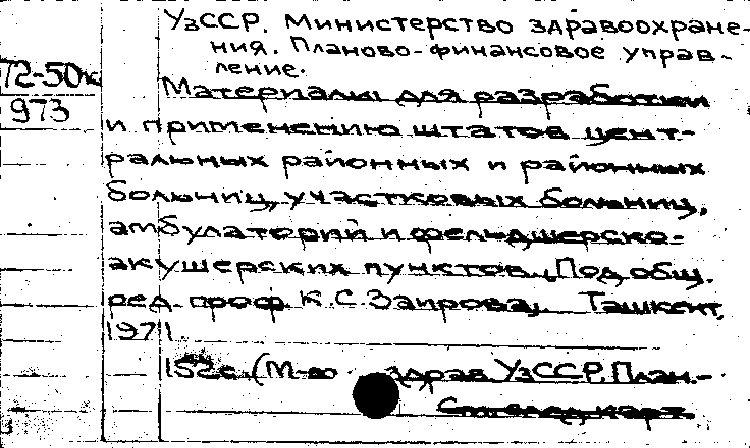 УзССР. Министерство здравоохране-
ния. Планово-финансовое управ-
ление.
72-50к
973
Материалы для разработки
и применению штатов цент-
ральных районных и районных
больниц, участковых больниц,
амбулаторий и фельдшерско-
акушерских пунктов. Под общ.
ред. проф. К.С. Заирова. Ташкент,
1971
152с. (М-во здрав УзССР. План.-
См. след. карт.